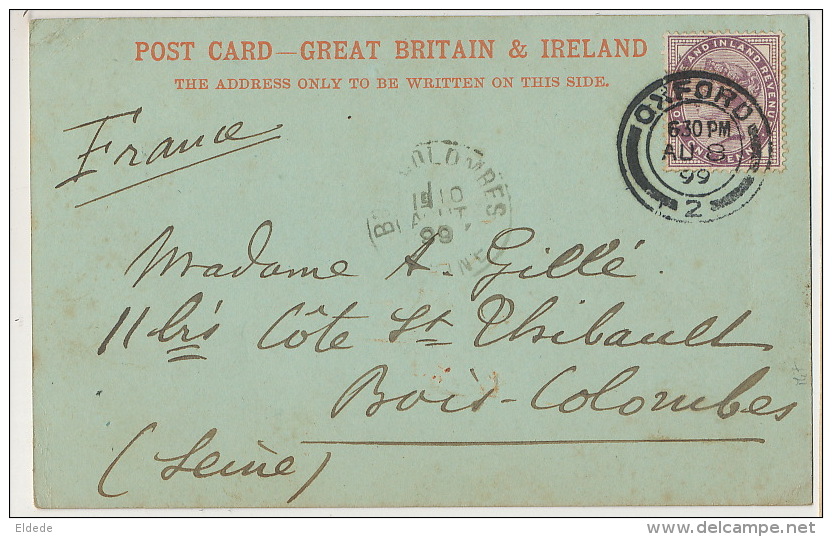 POST CARD—GREAT BRITAIN & IRELAND
THE ADDRESS ONLY TO BE WRITTEN ON THIS SIDE.
AND INLAND REVENUE
OXFORD
6 30 PM
AU 8
99
2
France
COLOMBES
10
99
Madame A. Gillé.
11 bis Côte St Thibault
Bois-Colombes
(Seine)
Eldede
delcampe.net